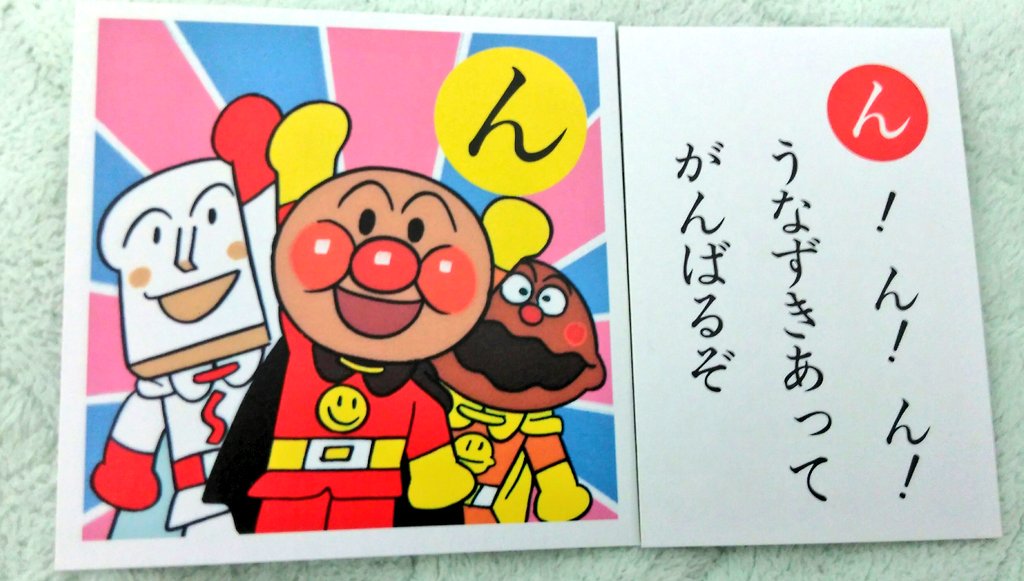 ん
ん
！ん！ん！
うなずきあって
がんばるぞ